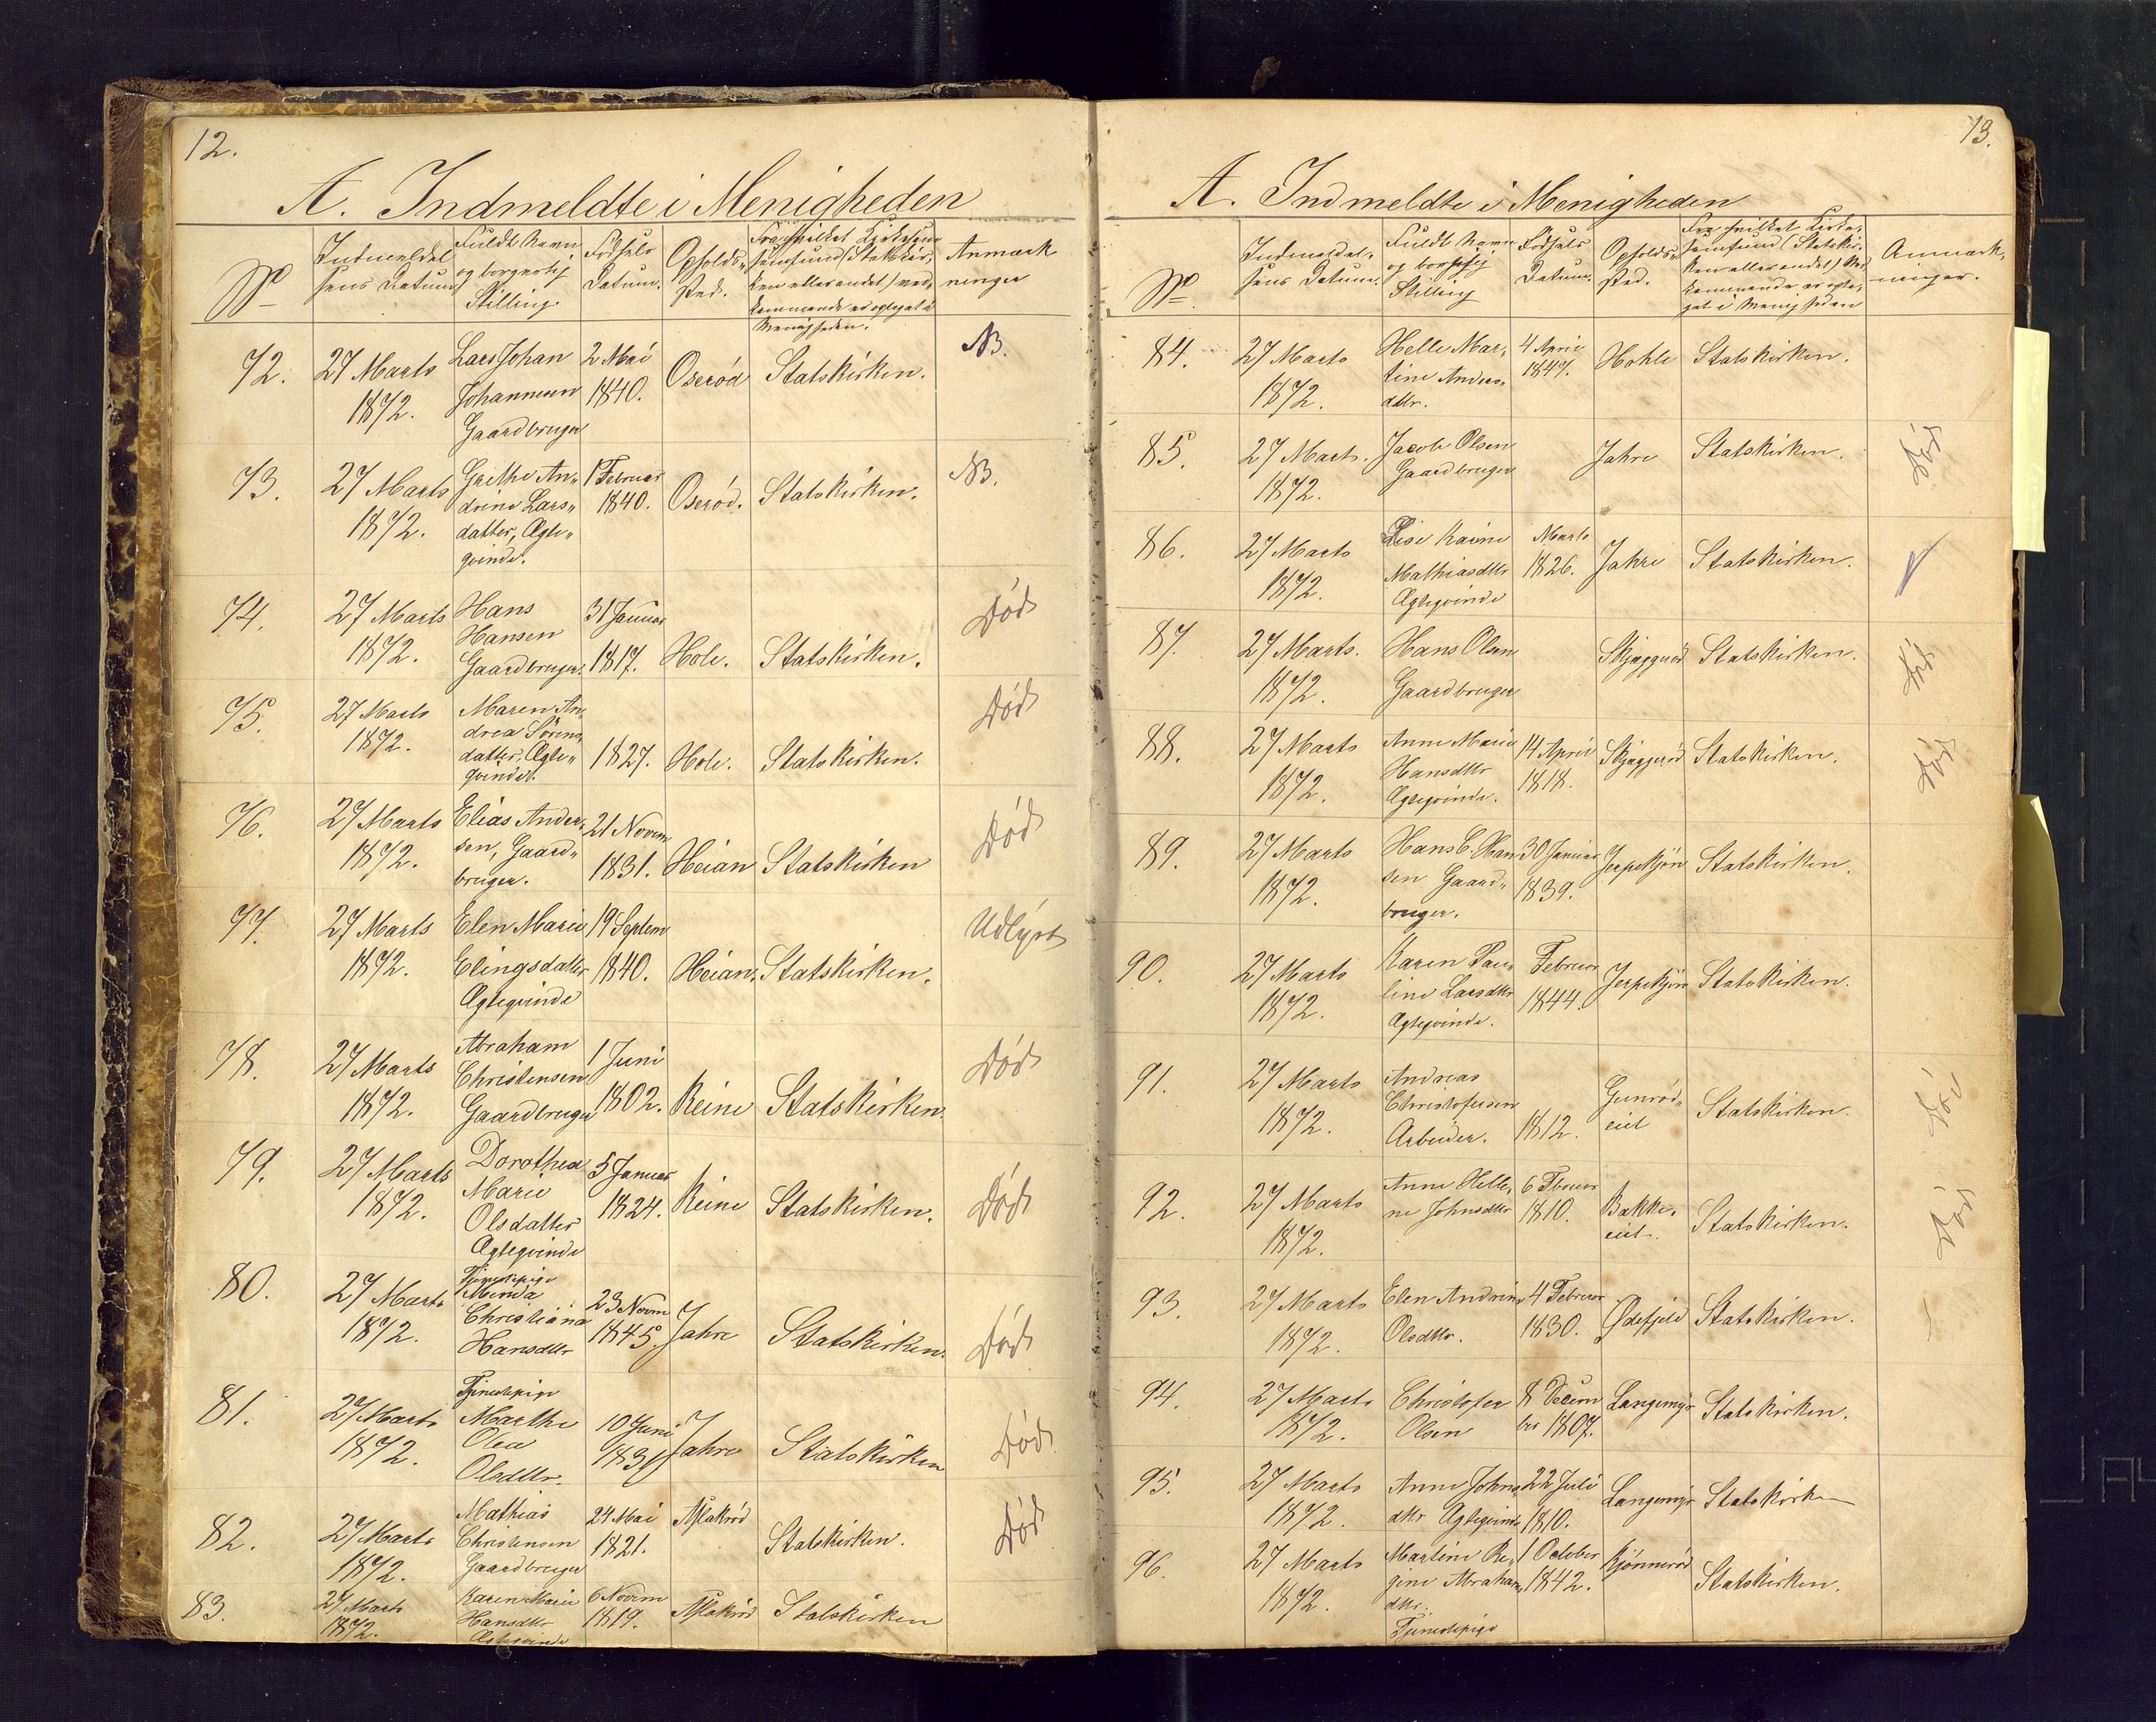 12.
A. Indmeldte i Menigheden
No
Indmeldel
sens Datum
Fuldt Navn
og borgerlig
Stilling.
Fødsels
Datum.
Opholds-
sted.
Fra hvilket Kirkesam
samfund (Statskir-
ken eller andet) ved-
kommende er optaget i
Menigheden.
Anmærk
ninger
72. 27 Marts 1872. Lars Johan Johannesen Gaardbruger 2 Mai 1840. Oserød Statskirken. NB.
73. 27 Marts 1872. Grethe An- drine Lars- datter, Ægte- qvinde. 1 Februar 1840. Oserød. Statskirken. NB.
74. 27 Marts 1872. Hans Hansen Gaardbruger. 31 Januar 1817. Hole. Statskirken. Død
75. 27 Marts 1872. Maren An- drea Sørens- datter, Ægte- qvinde. 1827. Hole. Statskirken. Død
76. 27 Marts 1872. Elias Ander- sen, Gaard- bruger. 21 Novem 1831. Heian Statskirken Død
77. 27 Marts 1872. Elen Marie Elingsdatter Ægteqvinde 19 Septem 1840. Heian. Statskirken. Udlyst
78. 27 Marts 1872. Abraham Christensen Gaardbruger 1 Juni 1802. Reine Statskirken. Død
79. 27 Marts 1872. Dorothea Marie Olsdatter Ægteqvinde 5 Januar 1824. Reine Statskirken. Død
80. 27 Marts 1872. Tjenestepige Minda Christiana Hansdtr 23 Novm 1845. Jahre Statskirken. Død
81. 27 Marts 1872. Tjenestepige Marthe Olea Olsdtr. 10 Juni Jahre Statskirken Død
82. 27 Marts 1872. Mathias Christensen Gaardbruger 24 Mai 1821. Aslakrød Statskirken. Død
83. 27 Marts 1872. Karen Marie Hansdtr Ægteqvinde 6 Novem 1819. Aslakrød Statskirken
13.
A. Indmeldte i Menigheden
No.
Indmeldel-
sens Datum.
Fuldt Navn
og borgerlig
Stilling
Fødsels
Datum.
Opholds-
sted.
Fra hvilket Kirke-
samfund (Statskir-
ken eller andet) ved
kommende er opta-
get i Menigheden
Anmærk-
ninger.
84. 27 Marts 1872. Helle Mar- tine Anders- dtr. 4 April 1847. Hohle Statskirken.
85. 27 Marts. 1872. Jacob Olsen Gaardbruger Jahre Statskirken. Død
86. 27 Marts 1872. Lise Karine Mathiasdtr Ægteqvinde Marts 1826. Jahre Statskirken.
87. 27 Marts. 1872. Hans Olsen Gaardbruger Skjæggerød Statskirken. Død
88. 27 Marts 1872. Anne Marie Hansdtr Ægteqvinde. 14 April 1818. Skjæggerød Statskirken. Død
89. 27 Marts 1872. Hans C. Han sen Gaard- bruger. 30 Januar 1839. Jerpekjøn Statskirken.
90. 27 Marts 1872. Karen Pau- line Larsdtr Ægteqvinde. Februar 1844. Jerpekjøn Statskirken.
91. 27 Marts 1872. Andreas Christofersen Arbeider. 1812. Gunrød- eiet Statskirken. Død
92. 27 Marts 1872. Anne Helle- ne Johnsdtr 6 Februar 1810. Bakke- eiet. Statskirken. Død
93. 27 Marts 1872. Elen Andrine Olsdtr. 4 Februar 1830. Ødefjeld Statskirken.
94. 27 Marts 1872. Christofer Olsen 8 Decem ber 1807. Langemyr Statskirken.
95. 27 Marts 1872. Anne Johns- dtr Ægteqvinde 22 Juli 1810. Langemyr Statskirken
96. 27 Marts 1872. Martine Re- gine Abrahams dtr. Tjenestepige 1 October 1842. Kjønnerød Statskirken.